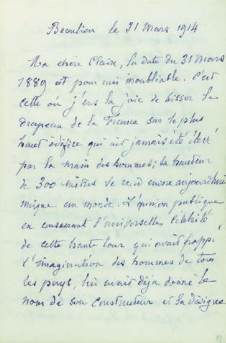 Beaulieu le 31 Mars 1914
Ma chère Claire, la date du 31 Mars
1889 est pour moi inoubliable. C'est
celle où j'eus la joie de hisser le
drapeau de la France sur le plus
haut édifice qui ait jamais été élevé
par la main des hommes; la hauteur
de 300 mètres se voit encore aujourd'hui
unique au monde. L'opinion publique
en consacrant l'universelle célébrité
de cette haute tour qui avait frappé
l'imagination des hommes de tous
les pays, lui avait déjà donné le
nom de son constructeur et la désigna